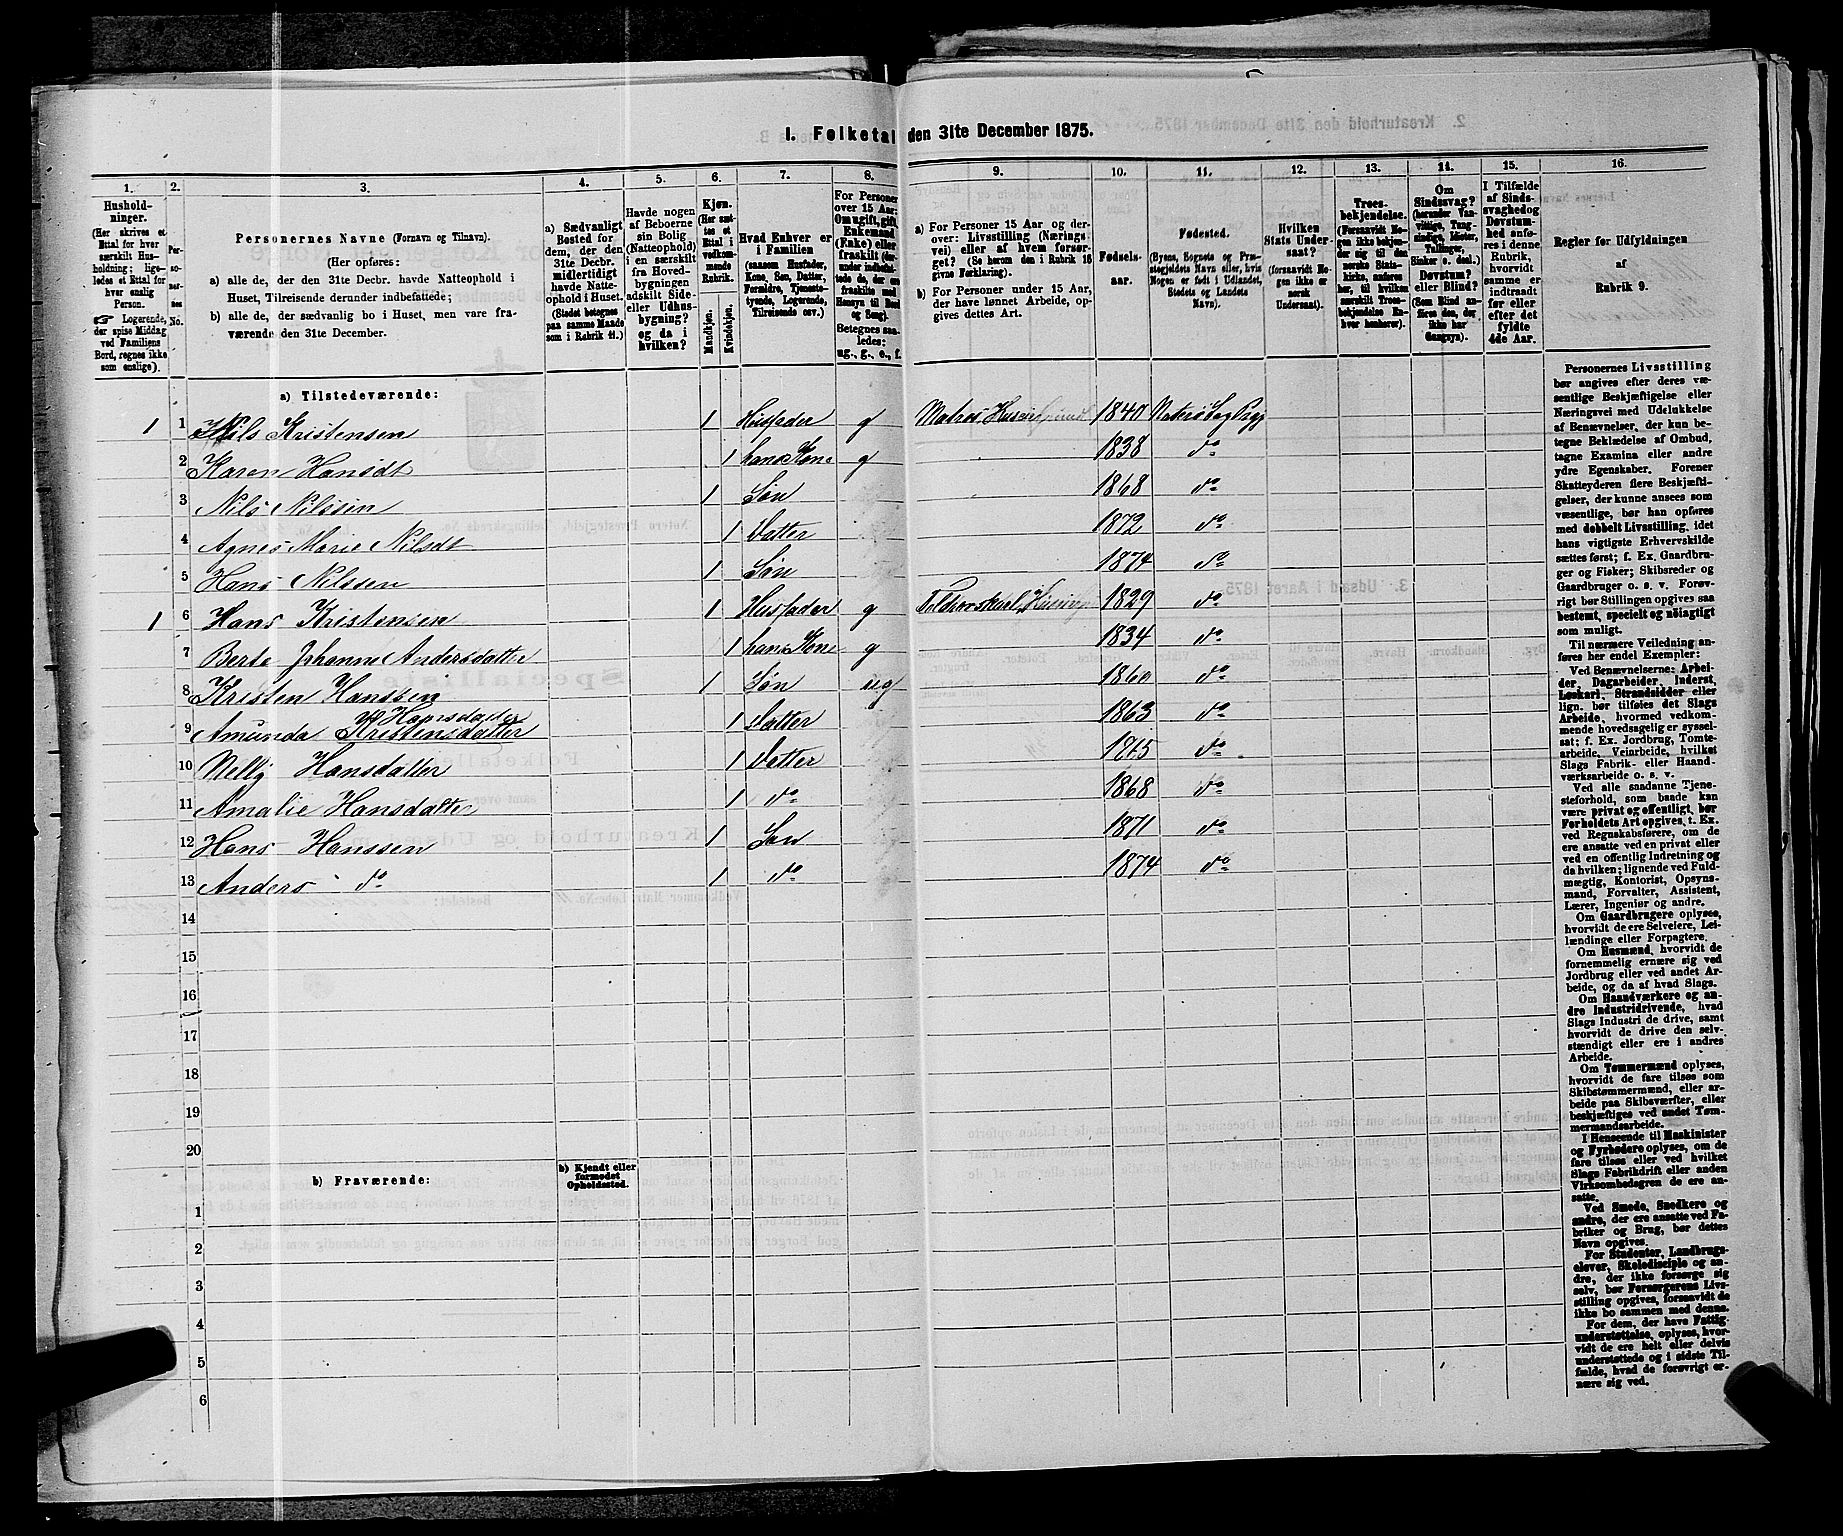 1. Folketal den 31te December 1875.
1. 2. 3. 4. 5. 6. 7. 8. 9. 10. 11. 12. 13. 14. 15. 16.
Hushold-
ninger.
(Her skrives et
Ettal for hver
særskilt Hus-
holdning; lige-
ledes et Ettal for
hver enslig
Person.
☞ Logerende,
der spise Middag
ved Familiens
Bord, regnes ikke
som enslige).
Per-
so-
ner-
nes
No.
Personernes Navne (Fornavn og Tilnavn).
(Her opføres:
a) alle de, der den 31te Decbr. havde Natteophold i
Huset, Tilreisende derunder indbefattede;
b) alle de, der sædvanlig bo i Huset, men vare fra-
værende den 31te December.
a) Sædvanligt
Bosted for
dem, der den
31te Decbr.
midlertidigt
havde Natte-
ophold i Huset.
(Stedet betegnes
paa samme Maade
som i Rubrik 11.)
Havde nogen
af Beboerne
sin Bolig
(Natteophold)
i en særskilt
fra Hoved-
bygningen
adskilt Side-
eller Udhus-
bygning?
og da i
hvilken?
Kjøn.
(Her sæt-
tes et
Ettal i
vedkom-
mende
Rubrik.
Mandkjøn.
Kvindekjøn.
Hvad Enhver er
i Familien
(saasom Husfader,
Kone, Søn, Datter,
Forældre, Tjeneste-
tyende, Logerende,
Tilreisende osv.)
For Personer
over 15 Aar:
Om ugift, gift,
Enkemand
(Enke) eller
fraskilt
Betegnes saa-
ledes:
ug., g., e., f.
a) For Personer 15 Aar og der-
over: Livsstilling (Nærings-
vei) eller af hvem forsør-
get? (Se herom den i Rubrik 16
givne Forklaring).
b) For Personer under 15 Aar,
der have lønnet Arbeide, op-
gives dettes Art.
Fødsels-
aar.
Fødested.
(Byens, Sognets og Præ-
stegjeldets Navn eller, hvis
Nogen er født i Udlandet,
Stedets og Landets
Navn).
Hvilken
Stats Under-
saat?
(forsaavidt No-
gen ikke er
norsk
Undersaat).
Troes-
bekjendelse.
(Forsaavidt No-
gen ikke bekjen-
der sig til den
norske Stats-
kirke, anføres
her, til hvilken
særskilt Troes-
bekjendelse En-
hver henhører).
Om
Sindssvag?
(herunder Van-
vittige, Tung-
sindige, Idioter,
Tullinger,
Sinker o. desl.)
Døvstum?
eller Blind?
(Som Blind an-
føres den, der
ikke har
Gangsyn).
I Tilfælde
af Sinds-
svaghed og
Døvstum-
hed anfø-
res i denne
Rubrik,
hvorvidt
samme er
indtraadt
før eller
efter det
fyldte
4de Aar.
Regler for Udfyldningen
af
Rubrik 9.
a) Tilstedeværende:
1 1 Nils Kristensen 1 Husfader g Matros 1840
2 Karen Hansdt 1 hans Kone g 1838 do
3 Nils Nilssen 1 Søn 1868 do
4 Agnes Marie Nilsdt 1 Datter 1872 do
5 Hans Nilssen 1 Søn 1874 do
1 6 Hans Kristensen 1 Husfader g 1829 do
7 Berte Johanne Andersdatter 1 hans Kone g 1834 do
8 Kristen Hanssen 1 Søn ug 1860 do
Hansdatter
9 Amunda Kristensdatter 1 Datter 1863 do
10 Nelly Hansdatter 1 Datter 1865 do
11 Amalie Hansdatter 1 do 1868 do
12 Hans Hanssen 1 Søn 1871 do
13 Anders do 1 do 1874 do
14
15
16
17
18
19
20
b) Fraværende:
b) Kjendt eller
formodet
Opholdssted.
1
2
3
4
5
6
Personernes Livsstilling
bør angives efter deres væ-
sentlige Beskjæftigelse eller
Næringsvei med Udelukkelse
af Benævnelser, der kun be-
tegne Beklædelse af Ombud,
tagne Examina eller andre
ydre Egenskaber. Forener
Skatteyderen flere Beskjæfti-
gelser, der kunne ansees som
væsentlige, bør han opføres
med dobbelt Livsstilling, idet
hans vigtigste Erhvervskilde
sættes først; f. Ex. Gaardbru-
ger og Fisker; Skibsreder og
Gaardbruger o. s. v. Forøv-
rigt bør Stillingen opgives saa
bestemt, specielt og nöiagtigt
som muligt.
Til nærmere Veiledning an-
føres her endel Exempler:
Ved Benævnelserne: Arbei-
der, Dagarbeider, Inderst,
Løskarl, Strandsidder eller
lign. bør tilføies det Slags
Arbeide, hvormed vedkom-
mende hovedsagelig er syssel-
sat; f. Ex. Jordbrug, Tomte-
arbeide, Veiarbeide, hvilket
Slags Fabrik- eller Haand-
værksarbeide o. s. v.
Ved alle saadanne Tjene-
steforhold, som baade kan
være privat og offentligt, bør
Forholdets Art opgives, t. Ex.
ved Regnskabsførere, om de
ere ansatte ved en privat eller
ved en offentlig Indretning og
da hvilken; lignende ved Fuld-
mægtig, Kontorist, Opsyns-
mand, Forvalter, Assistent,
Lærer, Ingeniør og andre.
Om Gaardbrugere oplyses,
hvorvidt de ere Selveiere, Lei-
lændinge eller Forpagtere.
Om Husmænd, hvorvidt de
fornemmelig ernære sig ved
Jordbrug eller ved andet Ar-
beide, og da af hvad Slags.
Om Haandværkere og an-
dre Industridrivende, hvad
Slags Industri de drive, samt
hvorvidt de drive den selv-
stændigt eller ere i andres
Arbeide.
Om Tømmermænd oplyses,
hvorvidt de fare tilsøs som
Skibstømmermænd, eller ar-
beide paa Skibsværfter, eller
beskjæftiges ved andet Tøm-
mermandsarbeide.
I Henseende til Maskinister
og Fyrbødere oplyses, om de
fare tilsøs eller ved hvilket
Slags Fabrikdrift eller anden
Virksomhedsgren de ere an-
satte.
Ved Smede, Snedkere og
andre, der ere ansatte ved Fa-
briker og Brug, bør dettes
Navn opgives.
For Studenter, Landbrugs-
elever, Skoledisciple og an-
dre, der ikke forsørge sig
selv, bør Forsørgerens Livs-
stilling opgives, forsaavidt de
ikke bo sammen med denne.
For dem, der have Fattig-
understøttelse, oplyses, hvor-
vidt de ere helt eller delvis
understøttede og i sidste Til-
fælde, hvad de forøvrigt er-
nære sig ved.